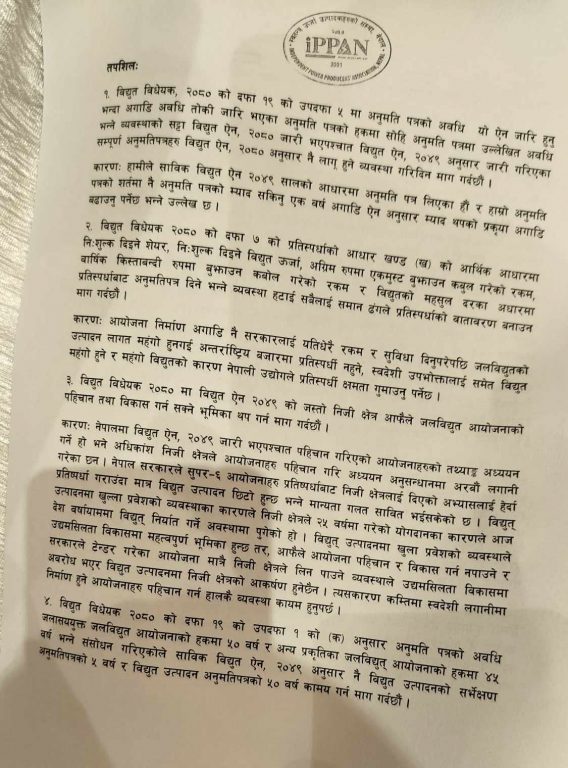 स्वतन्त्र ऊर्जा उत्पादकहरुको संस्था, नेपाल
iPPAN
2001
INDEPENDENT POWER PRODUCERS' ASSOCIATION, NEPAL
तपशिलः
१. विद्युत विधेयक, २०८० को दफा १९ को उपदफा ५ मा अनुमति पत्रको अवधि यो ऐन जारि हुनु
भन्दा अगाडि अवधि तोकी जारि भएका अनुमति पत्रको हकमा सोहि अनुमति पत्रमा उल्लेखित अवधि
भन्ने व्यवस्थाको सट्टा विद्युत ऐन, २०८० जारी भएपश्चात विद्युत ऐन, २०४९ अनुसार जारी गरिएका
सम्पूर्ण अनुमतिपत्रहरु विद्युत ऐन, २०८० अनुसार नै लागू हुने व्यवस्था गरिदिन माग गर्दछौं ।
कारणः हामीले साविक विद्युत ऐन २०४९ सालको आधारमा अनुमति पत्र लिएका हौं र हाम्रो अनुमति
पत्रको शर्तमा नै अनुमति पत्रको म्याद सकिनु एक वर्ष अगाडि ऐन अनुसार म्याद थपको प्रकृया अगाडि
बढाउनु पर्नेछ भन्ने उल्लेख छ ।
२. विद्युत विधेयक २०८० को दफा ७ को प्रतिस्पर्धाको आधार खण्ड (ख) को आर्थिक आधारमा
निःशुल्क दिइने शेयर, निःशुल्क दिइने विद्युत उर्जा, अग्रिम रुपमा एकमुस्ट बुझाउन कबुल गरेको रकम,
वार्षिक किस्ताबन्दी रुपमा बुझाउन कबोल गरेको रकम र विद्युतको महसुल दरका अधारमा
प्रतिस्पर्धाबाट अनुमतिपत्र दिने भन्ने व्यवस्था हटाई सबैलाई समान ढंगले प्रतिस्पर्धाको वातावरण बनाउन
माग गर्दछौं ।
कारणः आयोजना निर्माण अगाडी नै सरकारलाई यतिधेरै रकम र सुविधा दिनुपरेपछि जलविद्युतको
उत्पादन लागत महंगो हुनगई अन्तर्राष्ट्रिय बजारमा प्रतिस्पर्धी नहुने, स्वदेशी उपभोक्तालाई समेत विद्युत
महंगो हुने र महंगो विद्युतको कारण नेपाली उद्योगले प्रतिस्पर्धी क्षमता गुमाउनु पर्नेछ ।
३. विद्युत विधेयक २०८० मा विद्युत ऐन २०४९ को जस्तो निजी क्षेत्र आफैले जलविद्युत आयोजनाको
पहिचान तथा विकास गर्न सक्ने भूमिका थप गर्न माग गर्दछौं ।
कारणः नेपालमा विद्युत ऐन, २०४९ जारी भएपश्चात पहिचान गरिएको आयोजनाहरुको तथ्याङ्क अध्ययन
गर्ने हो भने अधिकांश निजी क्षेत्रले आयोजनाहरु पहिचान गरि अध्ययन अनुसन्धानमा अरबौं लगानी
गरेका छन । नेपाल सरकारले सुपर-६ आयोजनाहरु प्रतिष्पर्धाबाट निजी क्षेत्रलाई दिएको अभ्यासलाई हेर्दा
प्रतिष्पर्धा गराउँदा मात्र विद्युत उत्पादन छिटो हुन्छ भन्ने मान्यता गलत सावित भईसकेको छ । विद्युत्
उत्पादनमा खुल्ला प्रवेशको व्यवस्थाका कारणले निजी क्षेत्रले २५ वर्षमा गरेको योगदानका कारणले आज
देश वर्षायाममा विद्युत् निर्यात गर्ने अवस्थामा पुगेको हो । विद्युत् उत्पादनमा खुला प्रवेशको व्यवस्थाले
उद्यमसिलता विकासमा महत्वपुर्ण भूमिका हुन्छ तर, आफैले आयोजना पहिचान र विकास गर्न नपाउने र
सरकारले टेन्डर गरेका आयोजना मात्रै निजी क्षेत्रले लिन पाउने व्यवस्थाले उद्यमसिलता विकासमा
अबरोध भएर विद्युत उत्पादनमा निजी क्षेत्रको आकर्षण हुनेछैन । त्यसकारण कम्तिमा स्वदेशी लगानीमा
निर्माण हुने आयोजनाहरु पहिचान गर्न हालकै व्यवस्था कायम हुनुपर्छ ।
४. विद्युत विधेयक २०८० को दफा १९ को उपदफा १ को (क) अनुसार अनुमति पत्रको अवधि
जलासययुक्त जलविद्युत आयोजनाको हकमा ५० वर्ष र अन्य प्रकृतिका जलविद्युत् आयोजनाको हकमा ४५
वर्ष भन्ने संसोधन गरिएकोले साविक विद्युत ऐन, २०४९ अनुसार नै विद्युत उत्पादनको सर्भेक्षण
अनुमतिपत्रको ५ वर्ष र विद्युत उत्पादन अनुमतिपत्रको ५० वर्ष कामय गर्न माग गर्दछौं ।